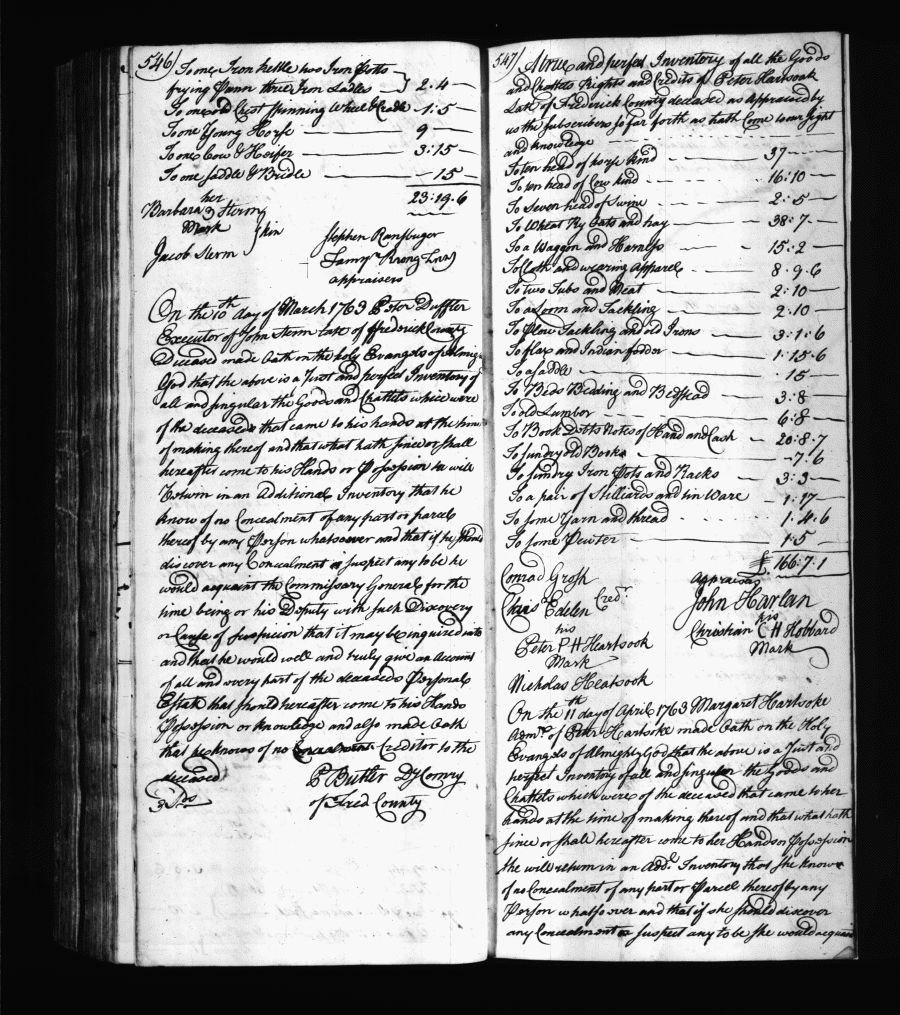 546
To one Iron kettle two Iron Potts
frying Pann three Iron Ladles } 2 . 4 —
To one old Chest Spinning Wheel & Cradle — 1 : 5 —
To one Young Horse — 9 —
To one Cow & Heifer — 3 : 15 —
To one Saddle & Bridle — 15 —
23 : 19 . 6
her
Barbara Sterm
Mark
} Kin
Jacob Sterm
Stephen Ransburger
appraisers
On the 10th day of March 1763 Peter Duffler
Executor of John Sterm late of ffrederick County
Deceased made Oath on the holy Evangels of Almigy
God that the above is a Just and perfect Inventory of
all and singular the Goods and Chattels which were
of the deceaseds that came to his hands at the time
of making thereof and that what hath since or shall
hereafter come to his Hands or Possession he will
Return in an Additional Inventory that he
know of no Concealment of any part or parcel
thereof by any Person whatsoever and that if he should
discover any Concealment or suspect any to be he
would acquaint the Commissary General for the
time being or his Deputy with such Discovery
or Cause of suspicion that it may be inquired into
and that he would well and truly give an Account
of all and every part of the deceaseds Personal
Estate that should hereafter come to his Hands
Possession or knowledge and also made Oath
that he knows of no Creditor to the
deceased
P Butler Dy Comry
of Fred County
547
A true and perfect Inventory of all the Goods
and Chattels Rights and Credits of Peter Hartsook
Late of Frederick County deceased as Appraised by
us the subscribers so far forth as hath Come to our sight
and knowledge
To ten head of horse kind — 37 —
To ten head of Cow kind — 16 : 10 —
To Seven head of Swine — 2 : 5 —
To Wheat Ry Oats and hay — 38 : 7 —
To a Waggon and Harness — 15 : 2 —
To Cloth and wearing Apparel — 8 . 9 . 6
To two Tubs and Meat — 2 : 10 —
To a Loom and Tackling — 2 . 10 —
To Plow Tackling and old Irons — 3 : 1 : 6
To flax and Indian fodder — 1 : 15 . 6
To a saddle — 15 —
To Beds Bedding and Bedstead — 3 : 8 —
To old Lumber — 6 : 8 —
To Book Debts Notes of Hand and Cash — 20 : 8 . 7
To sundry old Books — 7 . 6
To sundry Iron Pots and Racks — 3 : 3 —
To a pair of Stilliards and tin Ware — 1 : 17 —
To some Yarn and thread — 1 . 4 . 6
To some Pewter — 1 . 5 —
£ 166 : 7 . 1
Conrad Grosh
Chris Edelen Credr
his
Peter P H Heartsook
Mark
Nicholas Heatsook
appraisrs
John Harlan
his
Christian C H Hobbard
Mark
On the 11th day of April 1763 Margaret Hartsoke
Admx of Peter Hartsoke made Oath on the Holy
Evangels of Almighty God that the above is a Just and
perfect Inventory of all and singular the Goods and
Chattels which were of the deceased that came to her
hands at the time of making thereof and that what hath
since or shall hereafter come to her Hands or Possession
she will return in an Addl Inventory that she knows
of no Concealment of any part or Parcel thereof by any
Person whatsoever and that if she should discover
any Concealment or suspect any to be she would acquaint